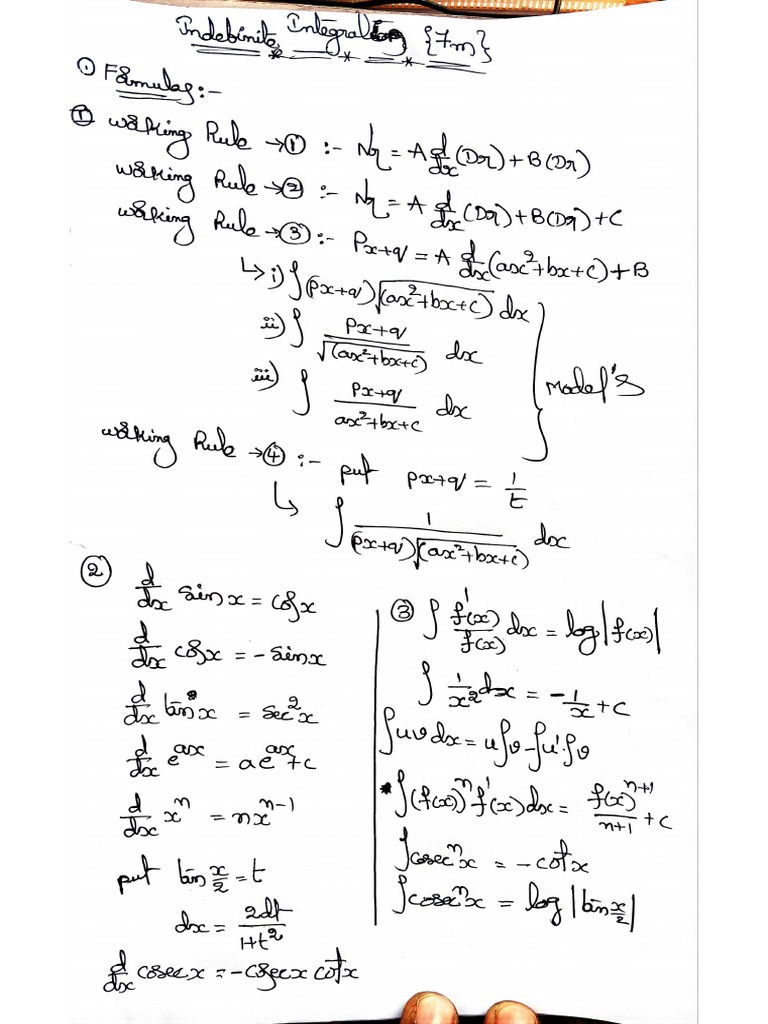 Indefinite Integrals {7m}
① Formulas:-
① Working Rule → ① :- Nr = A d/dx (Dr) + B(Dr)
Working Rule → ② :- Nr = A d/dx (Dr) + B(Dr) + C
Working Rule → ③ :- Px+q = A d/dx (ax²+bx+c) + B
↳ i) ∫(Px+q) √(ax²+bx+c) dx
ii) ∫ Px+q / √(ax²+bx+c) dx
iii) ∫ Px+q / ax²+bx+c dx
} Model's
Working Rule → ④ :- put px+q = 1/t
↳ ∫ 1 / (px+q)√(ax²+bx+c) dx
② d/dx sin x = cos x
d/dx cos x = - sin x
d/dx tan x = sec² x
d/dx e^ax = a e^ax + c
d/dx x^n = n x^n-1
put tan x/2 = t
dx = 2dt / 1+t²
d/dx cosec x = - cosec x cot x
③ ∫ f'(x)/f(x) dx = log |f(x)|
∫ 1/x² dx = - 1/x + c
∫ uv dx = u∫v - ∫u'∫v
* ∫(f(x))^n f'(x) dx = f(x)^n+1 / n+1 + c
∫ cosec^n x = - cot x
∫ cosec^n x = log |tan x/2|